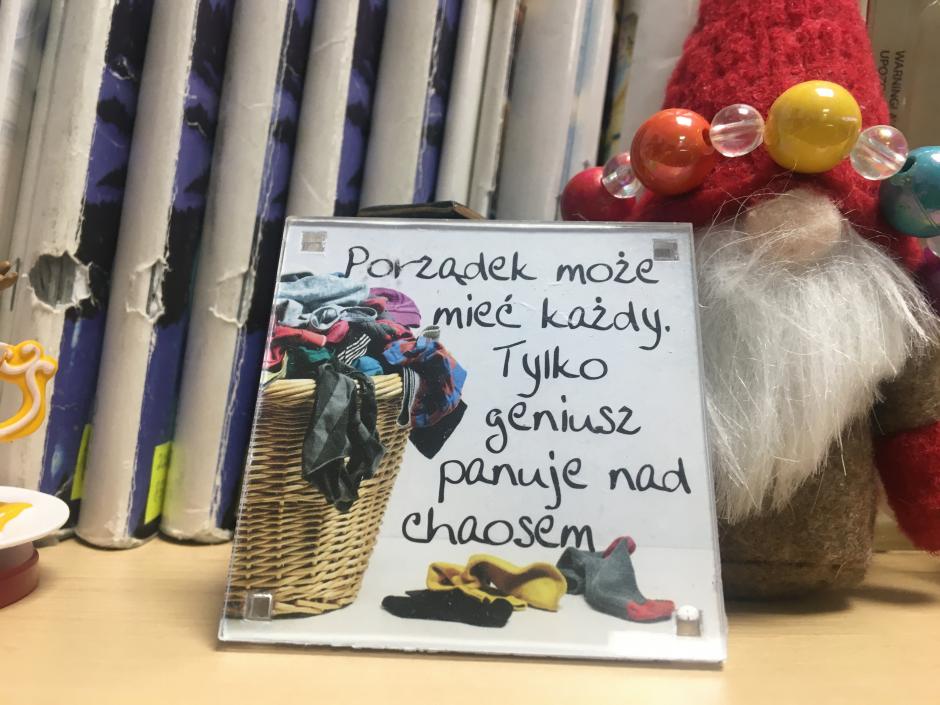 Porządek może
mieć każdy.
Tylko
geniusz
panuje nad
chaosem
WARNING!